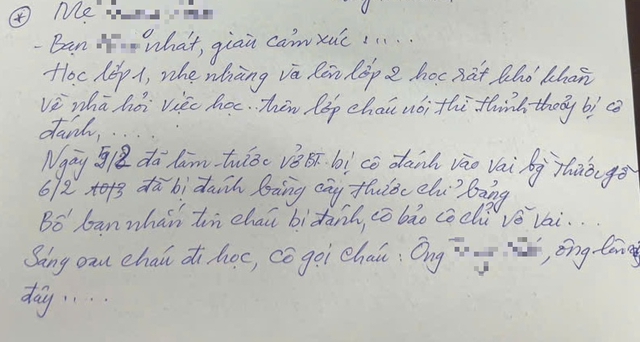 * Mẹ
- Bạn nhát, giàu cảm xúc : .....
Học lớp 1, nhẹ nhàng và lên lớp 2 học rất khó khăn
về nhà hỏi việc học.. trên lớp cháu nói thì thỉnh thoảng bị cô
đánh, .....
Ngày 5/2 đã làm trước vở BT bị cô đánh vào vai bg thước gỗ
6/2 đã bị đánh bằng cây thước chỉ bảng
Bố bạn nhắn tin cháu bị đánh, cô bảo cô chỉ vỗ vai...
Sáng sau cháu đi học, cô gọi cháu : Ông , ông lên
đây .....